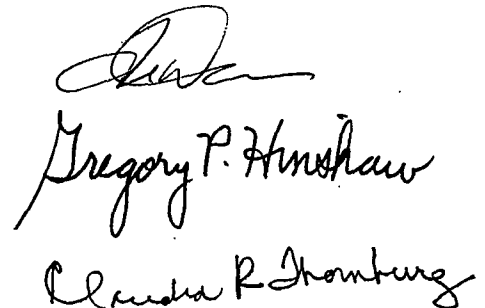 Gregory P. Hinshaw
Claudia R Thornburg